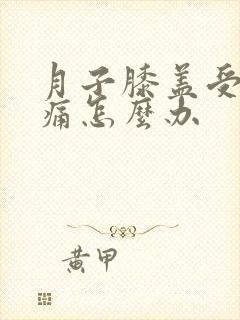 月子膝盖受
痛怎麽办
黄甲